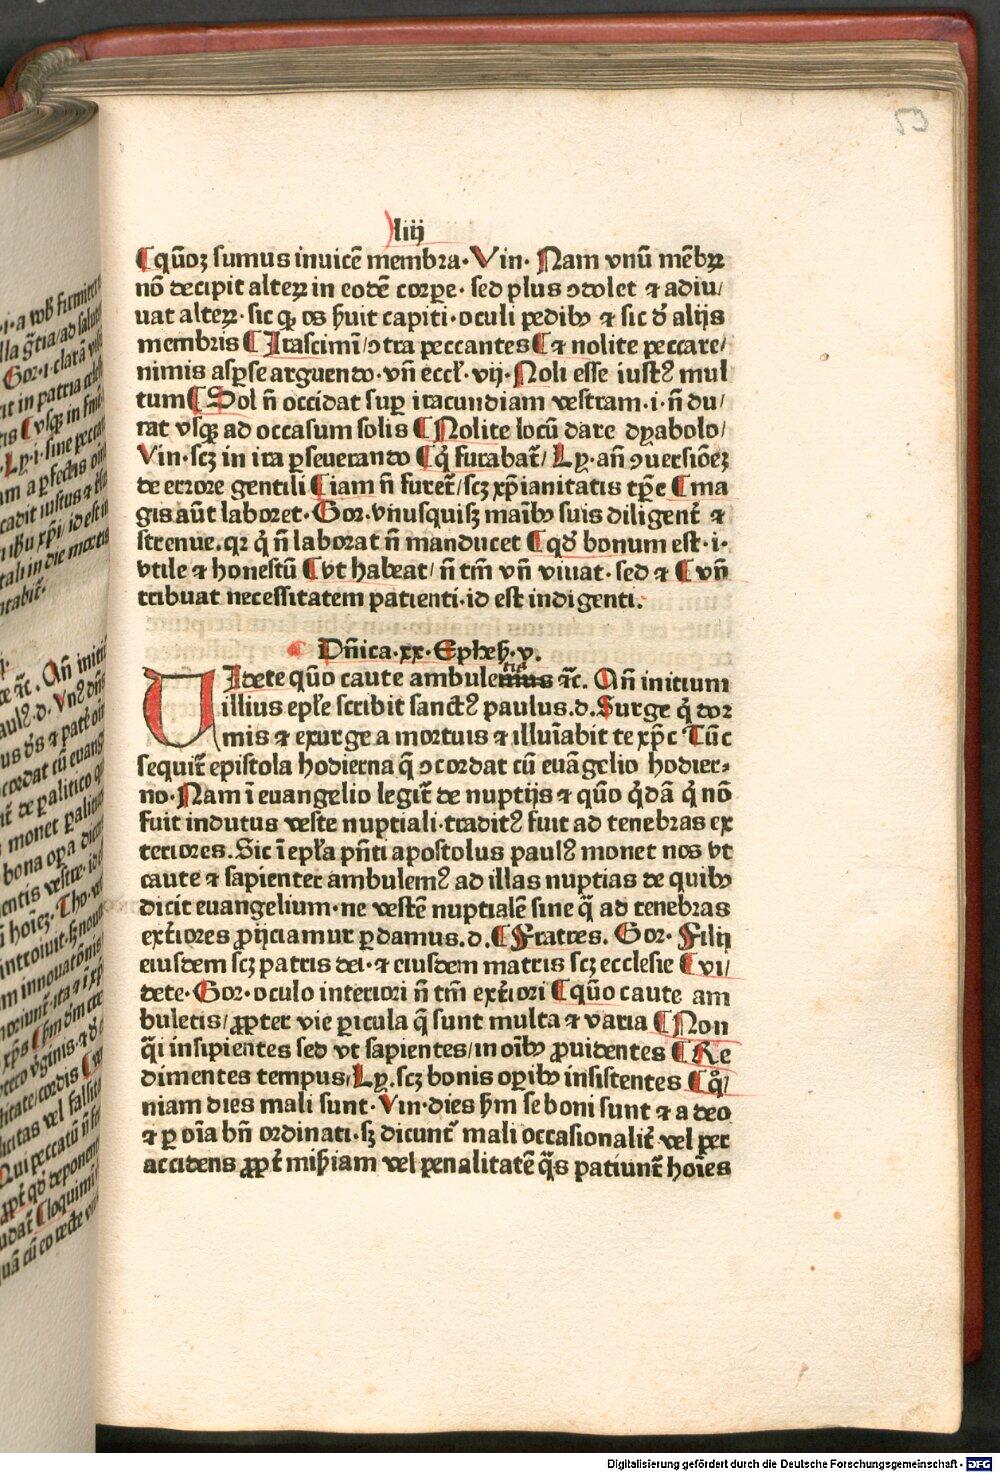 53
liij
¶ qūoꝫ sumus inuicē membra. Vin. Nam vnū mēbꝝ
nō decipit alteꝝ in eodē corpe. sed plus ꝯdolet ⁊ adiu/
uat alteꝝ. sic ꝙ os ħuit capiti. oculi pedibꝰ ⁊ sic ď alijs
membris ¶ Irascimī/ ꝯtra peccantes ¶ ⁊ nolite peccare/
nimis aspse arguendo. vn̄ eccł. vij. Noli esse iustꝰ mul
tum ¶ Sol n̄ occidat sup iracundiam vestram. i. n̄ du/
rat vsqꝫ ad occasum solis ¶ Nolite locū dare dyabolo/
Vin. scꝫ in ira ꝑseuerando ¶ q̇ furabat̄/ Ly. an̄ ꝯuersiōeꝫ
de errore gentili ¶ iam n̄ furet̄/ scꝫ xp̄ianitatis tꝑe ¶ ma
gis aūt laboret. Gor. vnusquisꝫ maībꝰ suis diligent̄ ⁊
strenue. qꝛ q̇ n̄ laborat n̄ manducet ¶ qď bonum est. i.
vtile ⁊ honestū ¶ vt habeat/ n̄ tm̄ vn̄ viuat. sed ⁊ ¶ vn̄
tribuat necessitatem patienti. id est indigenti.
Dn̄ica. xx. Epheħ. v.
VIdete quō caute ambulemus tis ⁊c. An̄ initium
illius eple scribit sanctꝰ paulus. d. Surge q̇ dor
mis ⁊ exurge a mortuis ⁊ illuīabit te xp̄c Tūc
sequit̄ epistola hodierna q̄ ꝯcordat cū euāgelio hodier⸗
no. Nam ī euangelio legit̄ de nuptijs ⁊ quō q̇dā q̇ nō
fuit indutus veste nuptiali. traditꝰ fuit ad tenebras ex
teriores. Sic ī epła pn̄ti apostolus paulꝰ monet nos vt
caute ⁊ sapienter ambulemꝰ ad illas nuptias de quibꝰ
dicit euangelium. ne vestē nuptialē sine q̄ ad tenebras
ext̄iores ꝓijciamur ꝑdamus. d. ¶ Fratres. Gor. Filij
eiusdem scꝫ patris dei. ⁊ eiusdem matris scꝫ ecclesie ¶ vi/
dete. Gor. oculo interiori n̄ tm̄ ext̄iori ¶ quō caute am
buletis/ ꝓpter vie ꝑicula q̄ sunt multa ⁊ varia ¶ Non
q̄i insipientes sed vt sapientes/ in oībꝰ ꝓuidentes ¶ Re
dimentes tempus/ Ly. scꝫ bonis oꝑibꝰ insistentes ¶ qº/
niam dies mali sunt. Vin. dies ħm se boni sunt ⁊ a deo
⁊ ꝑ oīa bn̄ ordinati. sꝫ dicunt᷑ mali occasionalit̄ vel per
accidens ꝓpt̄ miꝫiam vel penalitatē q̄s patiunt̄ hoīes
Digitalisierung gefördert durch die Deutsche Forschungsgemeinschaft - DFG